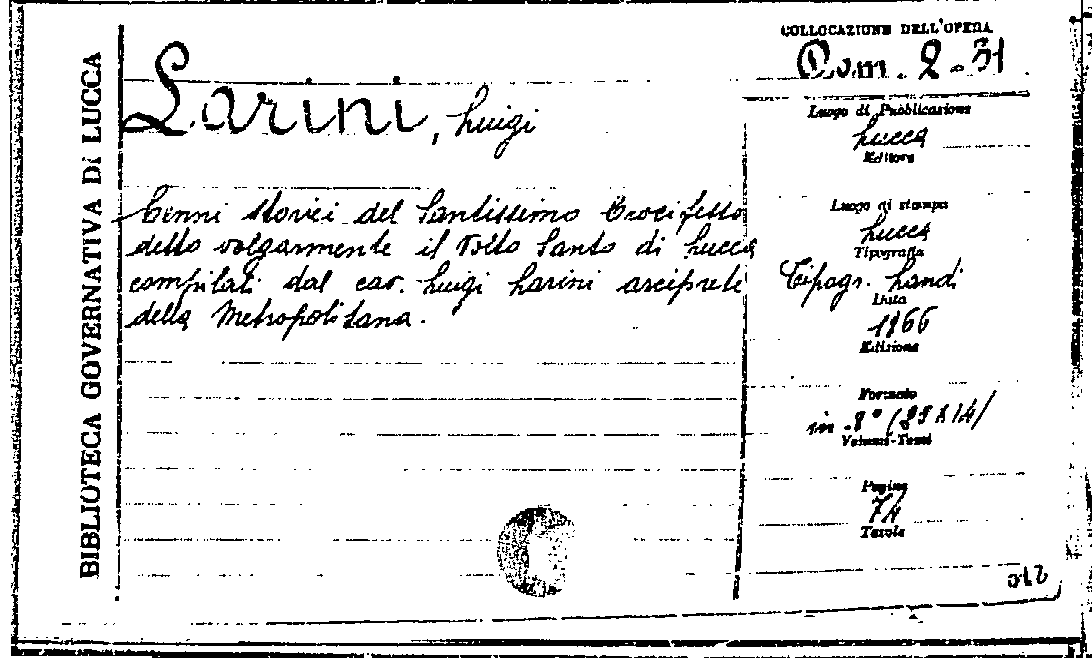 BIBLIOTECA GOVERNATIVA Di LUCCA
Larini, Luigi
Cenni storici del Santissimo Crocifisso
detto volgarmente il Volto Santo di Lucca
compilati dal cav. Luigi Larini arciprete
della Metropolitana.
COLLOCAZIONE DELL'OPERA
Com. 2-31
Luogo di Pubblicazione
Lucca
Editore
Luogo di stampa
Lucca
Tipografia
Tipogr. Landi
Data
1866
Edizione
Formato
in-8° (23x14)
Volumi-Tomi
Pagine
74
Tavole